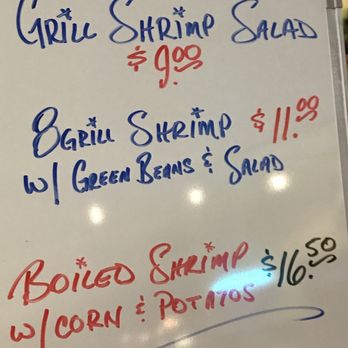 Grill Shrimp Salad
$9.00
8 Grill Shrimp $11.00
w/ Green Beans & Salad
Boiled Shrimp $16.50
w/ Corn & Potatos